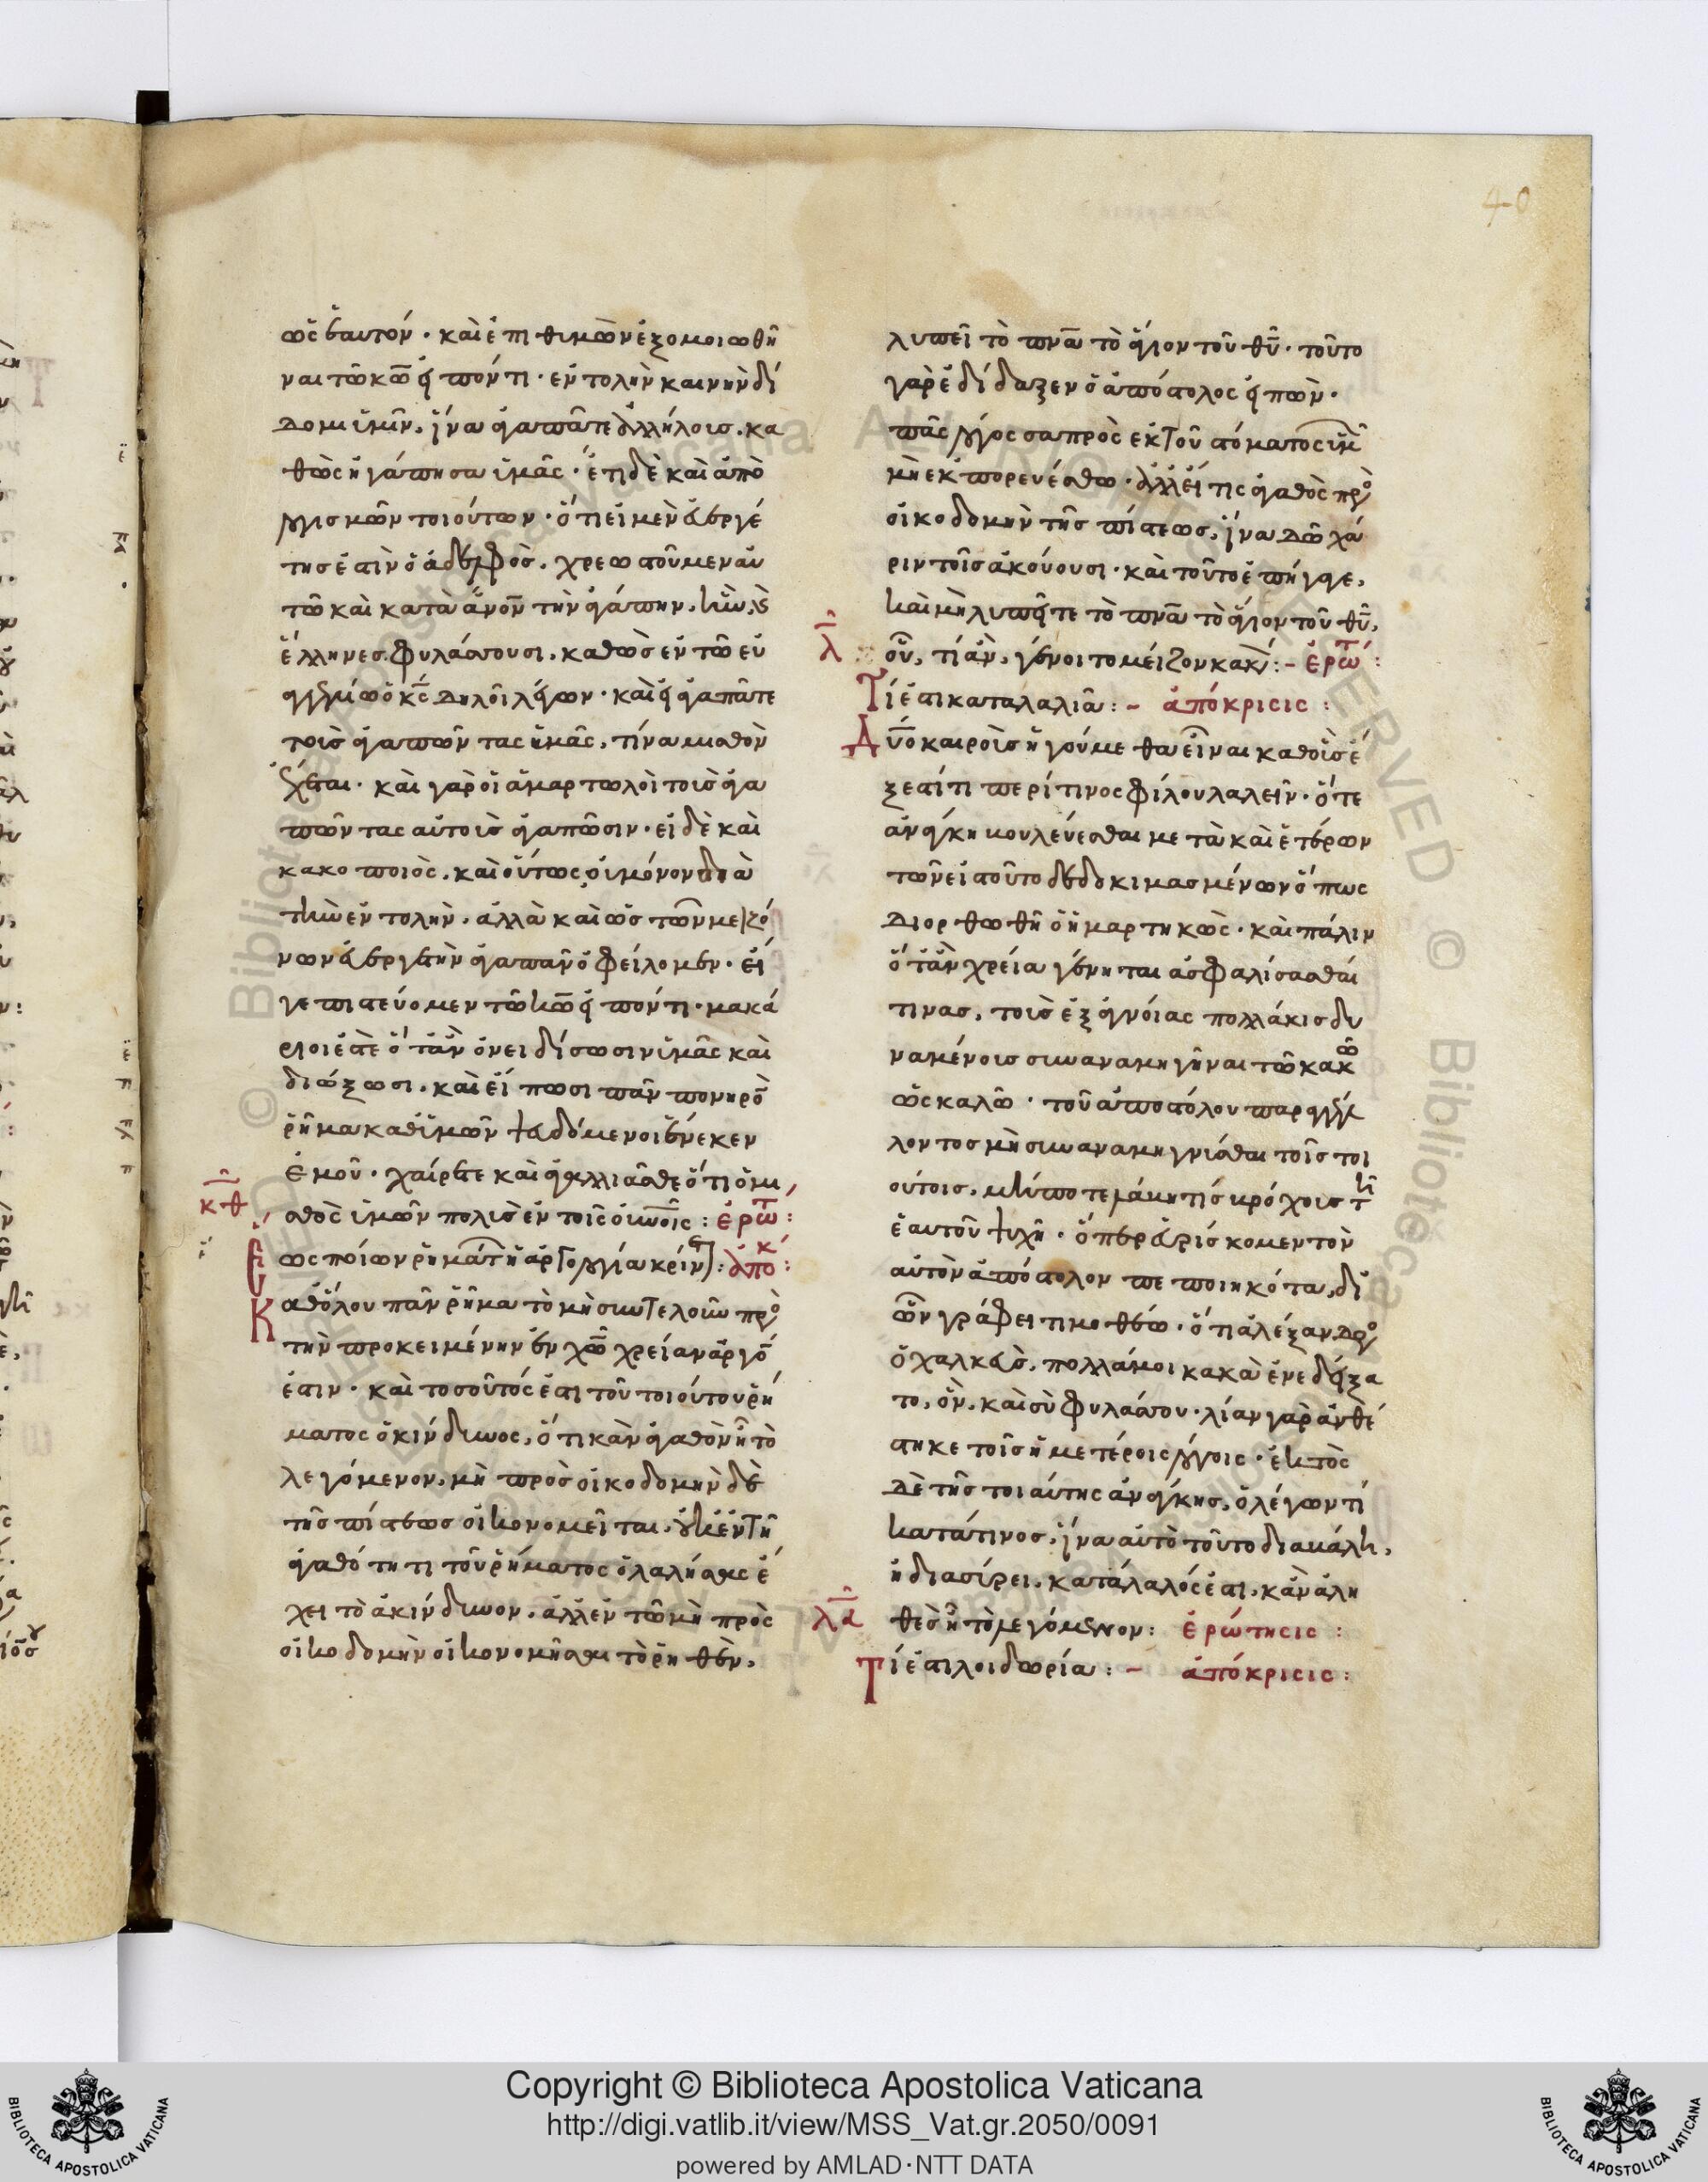 40
ὡς ἑαυτόν · καὶ ἐπιθυμῶν ἐξομοιωθῆ
ναι τῶ κω̅ εἰπόντι · ἐντολὴν καινὴν δί
δομι ὑμῖν, ἵνα ἀγαπᾶτε ἀλλήλοις, κα
θὼς ἠγάπησα ὑμᾶς · ἔτι δὲ καὶ ἀπὸ
λογισμῶν τοιούτων · ὅτι εἰ μὲν εὐεργέ
της ἐστὶν ὁ ἀδελφὸς, χρεωστοῦμεν αὐ
τῶ καὶ κατὰ ἄνο̅ν τὴν ἀγάπην, ἣν καὶ
ἕλληνες φυλάσσουσι, καθὼς ἐν τῶ εὐ
αγγελίω ὁ κ̅ς δηλοῖ λέγων · καὶ εἰ ἀγαπᾶτε
τοὺς ἀγαπῶντας ὑμᾶς, τίνα μισθὸν
ἔχεται · καὶ γὰρ οἱ ἁμαρτωλοὶ τοὺς ἀγα
πῶντας αὐτοὺς ἀγαπῶσιν · εἰ δὲ καὶ
κακοποιὸς, καὶ οὕτως οὐ μόνον διὰ
τὴν ἐντολὴν, ἀλλὰ καὶ ὡς τῶν μειζό
νων εὐεργέτην ἀγαπᾶν ὀφείλομεν · εἴ
γε πιστεύομεν τῶ κω̅ εἰπόντι · μακά
ριοι ἐστὲ ὅταν ὀνειδίσωσιν ὑμᾶς καὶ
διώξωσι, καὶ εἴπωσι πᾶν πονηρὸ̅
ῥῆμα καθ ὑμῶν ψευδόμενοι ἕνεκεν
ἐμοῦ · χαίρετε καὶ ἀγαλλιᾶσθε ὅτι ὁ μι
κθ
σθὸς ὑμῶν πολὺς ἐν τοῖς οὐνοῖς : ἐρωτ :
Ἕως ποίων ῥημάτ ἡ ἀργολογία κρίνετ : ἀποκ :
Καθόλου πᾶν ῥῆμα τὸ μὴ συντελοῦν πρὸ
τὴν προκειμένην ἐν χω̅ χρείαν ἀργό̅
ἐστιν · καὶ τοσοῦτός ἐστι τοῦ τοιούτου ῥή
ματος ὁ κίνδυνος, ὅτι κἂν ἀγαθὸν ἦ τὸ
λεγόμενον, μὴ πρὸς οἰκοδομὴν δὲ
τῆς πίστεως οἰκονομεῖται, οὐκ ἐν τῆ
ἀγαθότητι τοῦ ῥήματος ὁ λαλήσας ἔ
χει τὸ ἀκίνδυνον, ἀλλ ἐν τῶ μὴ πρὸς
οἰκοδομὴν οἰκονομῆσαι τὸ ῥηθὲν,
λυπεῖ τὸ πνα̅ τὸ ἅγιον τοῦ θυ̅ · τοῦτο
γὰρ ἐδίδαξεν ὁ ἀπόστολος εἰπὼν ·
πᾶς λόγος σαπρὸς ἐκ τοῦ στόματος ὑμ
μὴ ἐκπορευέσθω · ἀλλ εἴ τις ἀγαθὸς πρὸ
οἰκοδομὴν τῆς πίστεως, ἵνα δῶ χά
ριν τοῖς ἀκούουσι · καὶ τοῦτο ἐπήγαγε,
καὶ μὴ λυπεῖτε τὸ πνα̅ τὸ ἅγιον τοῦ θυ̅,
λ
οὗ, τί ἂν, γένοιτο μεῖζον κακὸν :– ἐρωτ :
Τί ἐστι καταλαλιᾶ :– ἀπόκρισις :
Δύο καιροὺς ἡγούμεθα εἶναι καθ οὓς ἔ
ξεστί τι περί τινος φίλου λαλεῖν · ὅτε
ἀνάγκη βουλεύεσθαι μετὰ καὶ ἑτέρων
τῶν εἰς τοῦτο δεδοκιμασμένων ὅπως
διορθωθῆ ὁ ἡμαρτηκὼς · καὶ πάλιν
ὅταν χρεία γένηται ἀσφαλίσασθαι
τινας, τοὺς ἐξ ἀγνοίας πολλάκις δυ
ναμένοις συναναμιγῆναι τῶ κακῶ
ὡς καλῶ · τοῦ ἀποστόλου παραγγέλ
λοντος μὴ συναναμίγνυσθαι τοῖς τοι
ούτοις, μήποτε λάβη τὶς βρόχοις τῆ
ἑαυτοῦ ψυχῆ · ὅπερ εὑρίσκομεν τὸν
αὐτὸν ἀπόστολον πεποιηκότα, δι
ὧν γράφει τιμοθέω · ὅτι ἀλέξανδρος
ὁ χαλκεὺς, πολλά μοι κακὰ ἐνεδείξα
το, ὃν, καὶ σὺ φυλάσσου · λίαν γὰρ ἀνθέ
στηκε τοῖς ἡμετέροις λόγοις · ἐκτὸς
δὲ τῆς τοιαύτης ἀνάγκης, ὁ λέγων τί
κατά τινος, ἵνα αὐτὸ τοῦτο διαβάλη,
ἢ διασύρει, κατάλαλός ἐστι, κἂν ἀλη
λα
θὲς ἦ τὸ λεγόμενον : ἐρώτησις :
Τί ἐστι λοιδωρία :– ἀπόκρισις :
Copyright © Biblioteca Apostolica Vaticana
http://digi.vatlib.it/view/MSS_Vat.gr.2050/0091
powered by AMLAD·NTT DATA